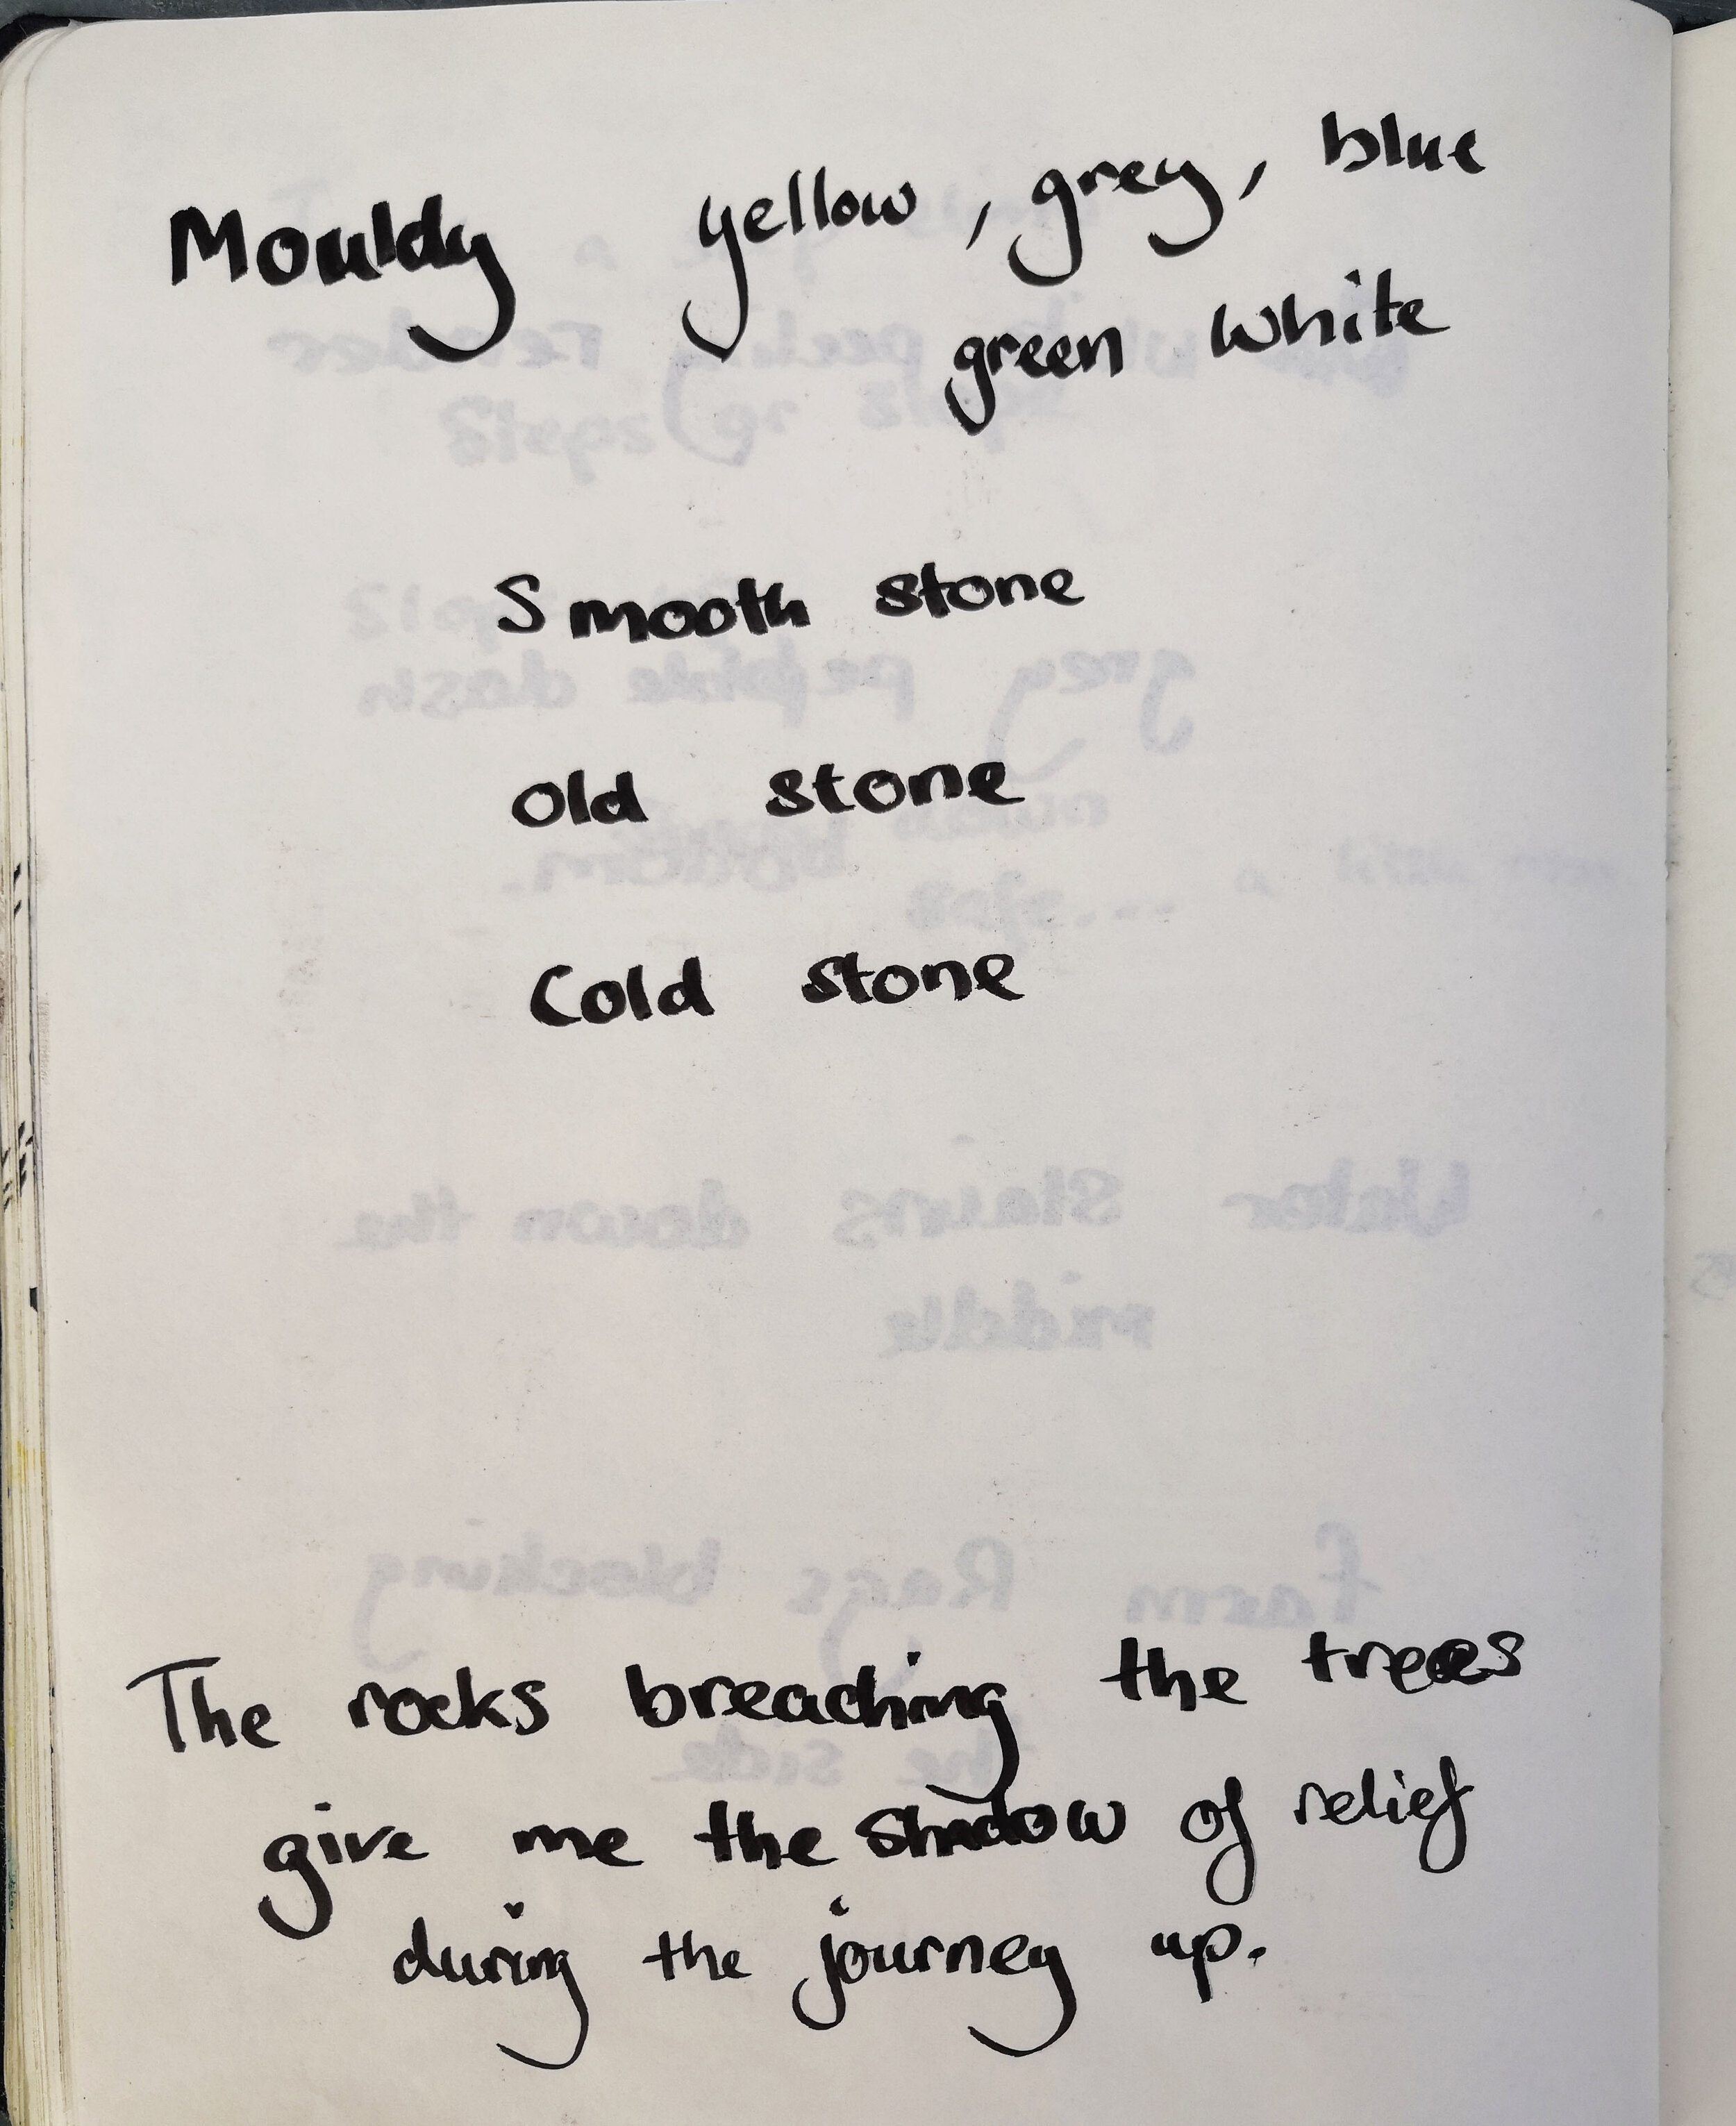 Mouldy yellow, grey, blue
green white
Smooth stone
old stone
Cold stone
The rocks breaching the trees
give me the shadow of relief
during the journey up.